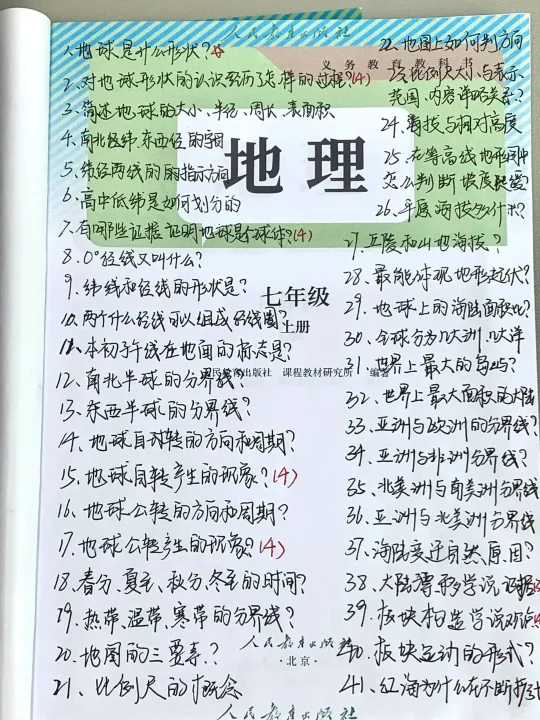 人民教育出版社
义务教育教科书
地理
七年级
上册
人民教育出版社 课程教材研究所 编著
人民教育出版社
·北京·
人民教育出版社
1.地球是什么形状?
2.对地球形状的认识经历了怎样的过程?(4)
3.简述地球的大小、半径、周长、表面积
4.南北经纬、东西经的
5.纬经两线的的指示方向
6.高中低纬是如何划分的
7.有哪些证据证明地球是个球体?(4)
8.0°经线又叫什么?
9.纬线和经线的形状是?
10.两个什么经线可以组成经线圈?
11.本初子午线在地面的标志是?
12.南北半球的分界线?
13.东西半球的分界线?
14.地球自转的方向和周期?
15.地球自转产生的现象?(4)
16.地球公转的方向和周期?
17.地球公转产生的现象?(4)
18.春分、夏至、秋分、冬至的时间?
19.热带、温带、寒带的分界线?
20.地图的三要素?
21、比例尺的概念
22.地图上如何判方向
23.比例尺大小与表示
范围、内容详略关系?
24.海拔与相对高度
25.在等高线地形图中
怎么判断坡度陡缓
26.平原海拔多少米?
27.丘陵和山地海拔?
28.最能体现地形起伏?
29.地球上的海陆面积比?
30.全球分为几大洲、几大洋
31.世界上最大的岛屿?
32.世界上最大面积的大陆
33.亚洲与欧洲的分界线?
34.亚洲与非洲分界线?
35.北美洲与南美洲分界线
36.亚洲与北美洲分界线
37.海陆变迁自然原因?
38.大陆漂移学说证据
39.板块构造学说观点
40.板块运动的形式?
41.红海为什么在不断扩